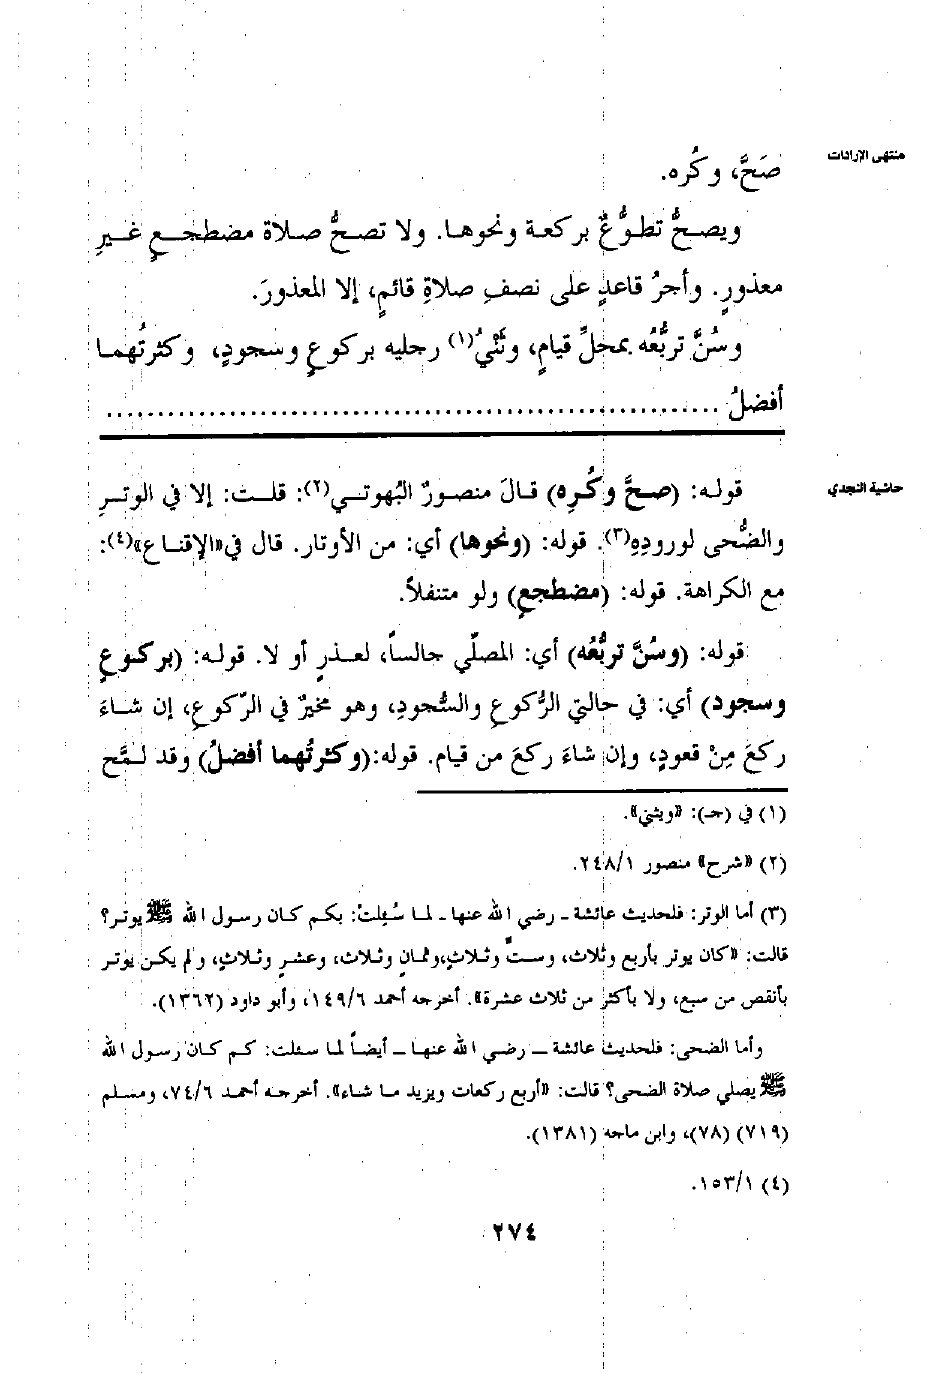 منتهى الإرادات
صَحَّ، وكُره.
ويصحُّ تطوُّعٌ بركعة ونحوها. ولا تصحُّ صلاة مضطجعٍ غيرِ
معذورٍ. وأجرُ قاعدٍ على نصفِ صلاةِ قائمٍ، إلا المعذورَ.
وسُنَّ تربُّعُه بمحلِّ قيامٍ، وثَنْيُ(١) رجليه بركوعٍ وسجودٍ، وكثرتُهما
أفضلُ ............................................................
حاشية النجدي
قوله: (صحَّ وكُرِه) قالَ منصورٌ البُهوتي(٢): قلت: إلا في الوترِ
والضُّحى لورودِهِ(٣). قوله: (ونحوها) أي: من الأوتار. قال في«الإقناع»(٤):
مع الكراهة. قوله: (مضطجعٍ) ولو متنفلاً.
قوله: (وسُنَّ تربُّعُه) أي: المصلّي جالساً، لعذرٍ أو لا. قوله: (بركوعٍ
وسجود) أي: في حالتي الرُّكوعِ والسُّجودِ، وهو مخيرٌ في الرّكوعِ، إن شاءَ
ركعَ مِنْ قعودٍ، وإن شاءَ ركعَ من قيام. قوله:(وكثرتُهما أفضلُ) وقد لمَّح
(١) في (جـ): «ويثني».
(٢) «شرح» منصور ٢٤٨/١.
(٣) أما الوتر: فلحديث عائشة - رضي الله عنها - لما سُئلت: بكم كان رسول الله ﷺ يوتر؟
قالت: «كان يوتر بأربع وثلاث، وستٍّ وثلاثٍ،وثمانٍ وثلاث، وعشرٍ وثلاثٍ، ولم يكن يوتر
بأنقص من سبع، ولا بأكثر من ثلاث عشرة». أخرجه أحمد ١٤٩/٦، وأبو داود (١٣٦٢).
وأما الضحى: فلحديث عائشة – رضي الله عنها – أيضاً لما سئلت: كم كان رسول الله
ﷺ يصلي صلاة الضحى؟ قالت: «أربع ركعات ويزيد ما شاء». أخرجه أحمد ٧٤/٦، ومسلم
(٧١٩) (٧٨)، وابن ماجه (١٣٨١).
(٤) ١٥٣/١.
٢٧٤